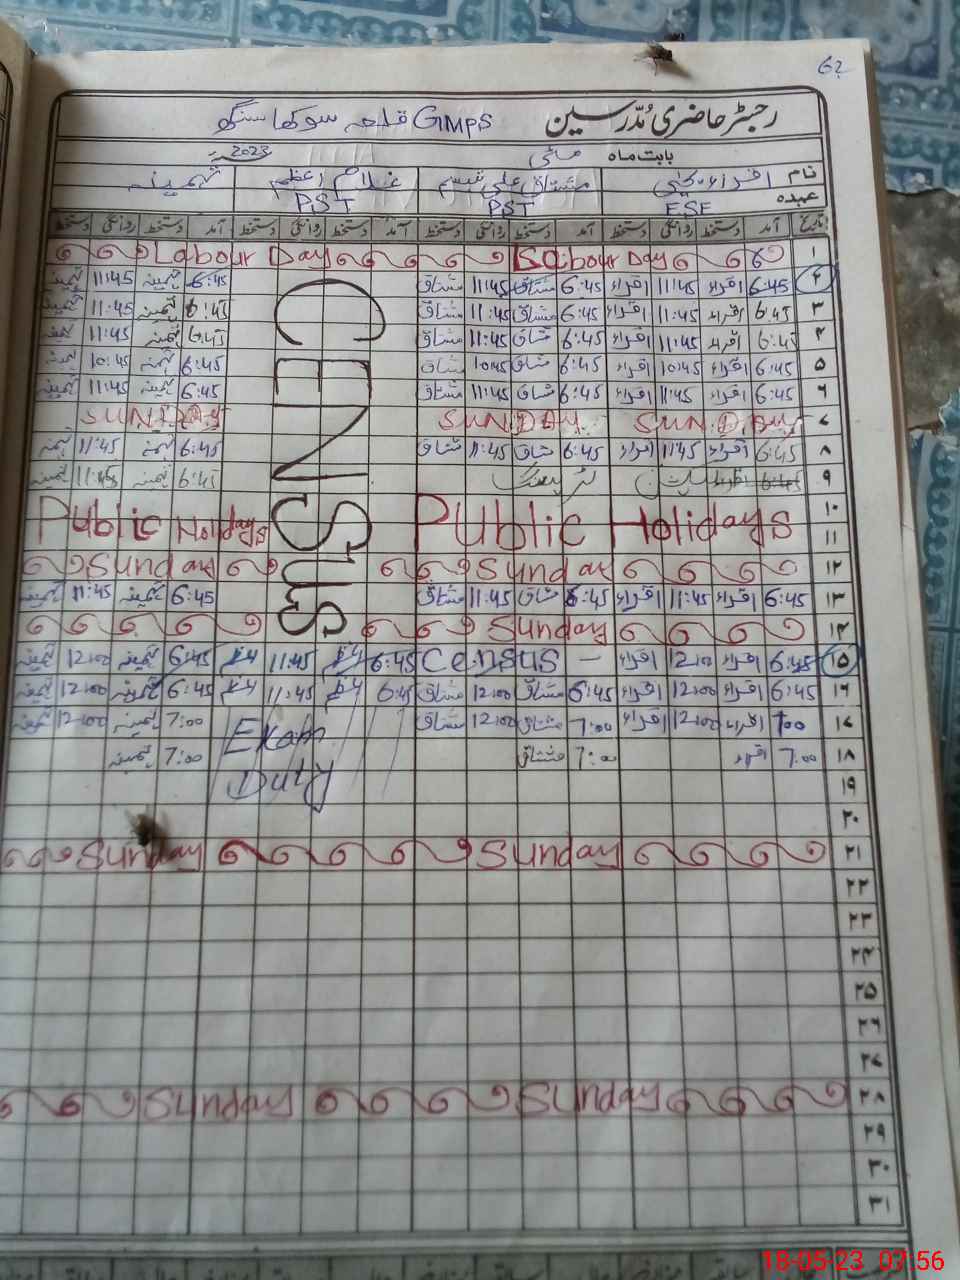 62
رجسٹر حاضری مدرسین GMPS قلعہ سوکھا سنگھ
بابت ماہ مئی 2023
نام اقراء مشتاق علی تبسم غلام اعظم ثمینہ
عہدہ ESE PST PST
تاریخ آمد دستخط روانگی دستخط آمد دستخط روانگی دستخط آمد دستخط روانگی دستخط آمد دستخط روانگی دستخط
۱ Labour Day Labour Day
۲ 6:45 اقراء 11:45 اقراء 6:45 مشتاق 11:45 مشتاق CENSUS 6:45 ثمینہ 11:45 ثمینہ
۳ 6:45 اقراء 11:45 اقراء 6:45 مشتاق 11:45 مشتاق 6:45 ثمینہ 11:45 ثمینہ
۴ 6:45 اقراء 11:45 اقراء 6:45 مشتاق 11:45 مشتاق 6:45 ثمینہ 11:45 ثمینہ
۵ 6:45 اقراء 10:45 اقراء 6:45 مشتاق 10:45 مشتاق 6:45 ثمینہ 10:45 ثمینہ
۶ 6:45 اقراء 11:45 اقراء 6:45 مشتاق 11:45 مشتاق 6:45 ثمینہ 11:45 ثمینہ
۷ SUNDAY SUNDAY SUNDAY
۸ 6:45 اقراء 11:45 اقراء 6:45 مشتاق 11:45 مشتاق 6:45 ثمینہ 11:45 ثمینہ
۹ 6:45 اقراء 6:45 ثمینہ 11:45 ثمینہ
۱۰ Public Holidays Public Holidays
۱۱
۱۲ Sunday Sunday
۱۳ 6:45 اقراء 11:45 اقراء 6:45 مشتاق 11:45 مشتاق 6:45 ثمینہ 11:45 ثمینہ
۱۴ Sunday
۱۵ 6:45 اقراء 12:00 اقراء – Census 6:45 اعظم 11:45 اعظم 6:45 ثمینہ 12:00 ثمینہ
۱۶ 6:45 اقراء 12:00 اقراء 6:45 مشتاق 12:00 مشتاق 6:45 اعظم 11:45 اعظم 6:45 ثمینہ 12:00 ثمینہ
۱۷ 7:00 اقراء 12:00 اقراء 7:00 مشتاق 12:00 مشتاق Exam Duty 7:00 ثمینہ 12:00 ثمینہ
۱۸ 7:00 اقراء 7:00 مشتاق 7:00 ثمینہ
۱۹
۲۰
۲۱ Sunday Sunday
۲۲
۲۳
۲۴
۲۵
۲۶
۲۷
۲۸ Sunday Sunday
۲۹
۳۰
۳۱
18-05-23 07:56